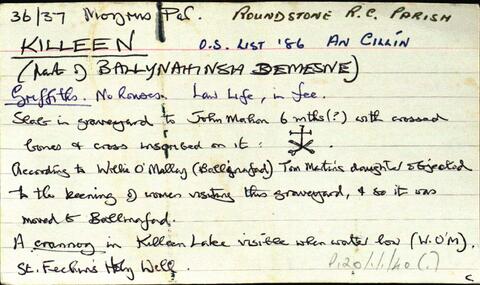 36/37 Moyrus Par. ROUNDSTONE R.C. PARISH
KILLEEN O.S. LIST '86 AN CILLÍN
(part of BALLYNAHINSH DEMESNE)
Griffiths. No houses. Law Life, in fee.
Slab in graveyard to John Mahon 6 mths(?) with crossed
bones & cross inscribed on it :
According to Willie O'Malley (Ballinafad) Tom Martin's daughter objected
to the keening of women visiting this graveyard, & so it was
moved to Ballinafad.
A crannog in Killeen Lake visible when water low (W.O'M).
St. Fechins Holy Well.
P.20/1/1/40 (.)
c